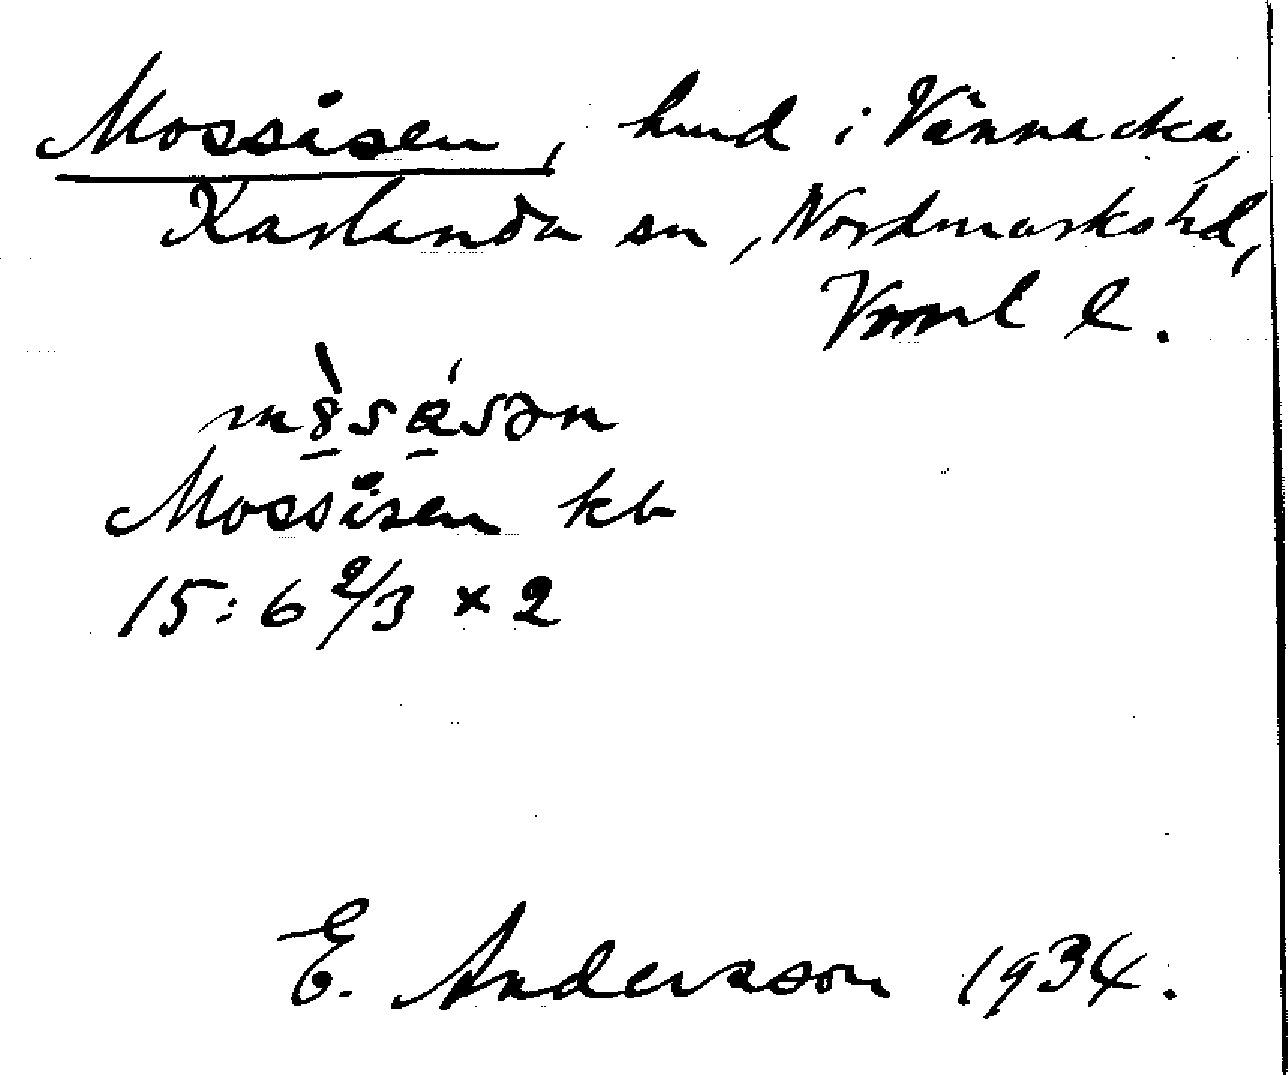 Mossåsen, hmd i Vännacka,
Karlanda sn, Nordmarks hd,
Vrml l.
Mossåsen kb
15:6 2/3 x 2
E. Andersson 1934.